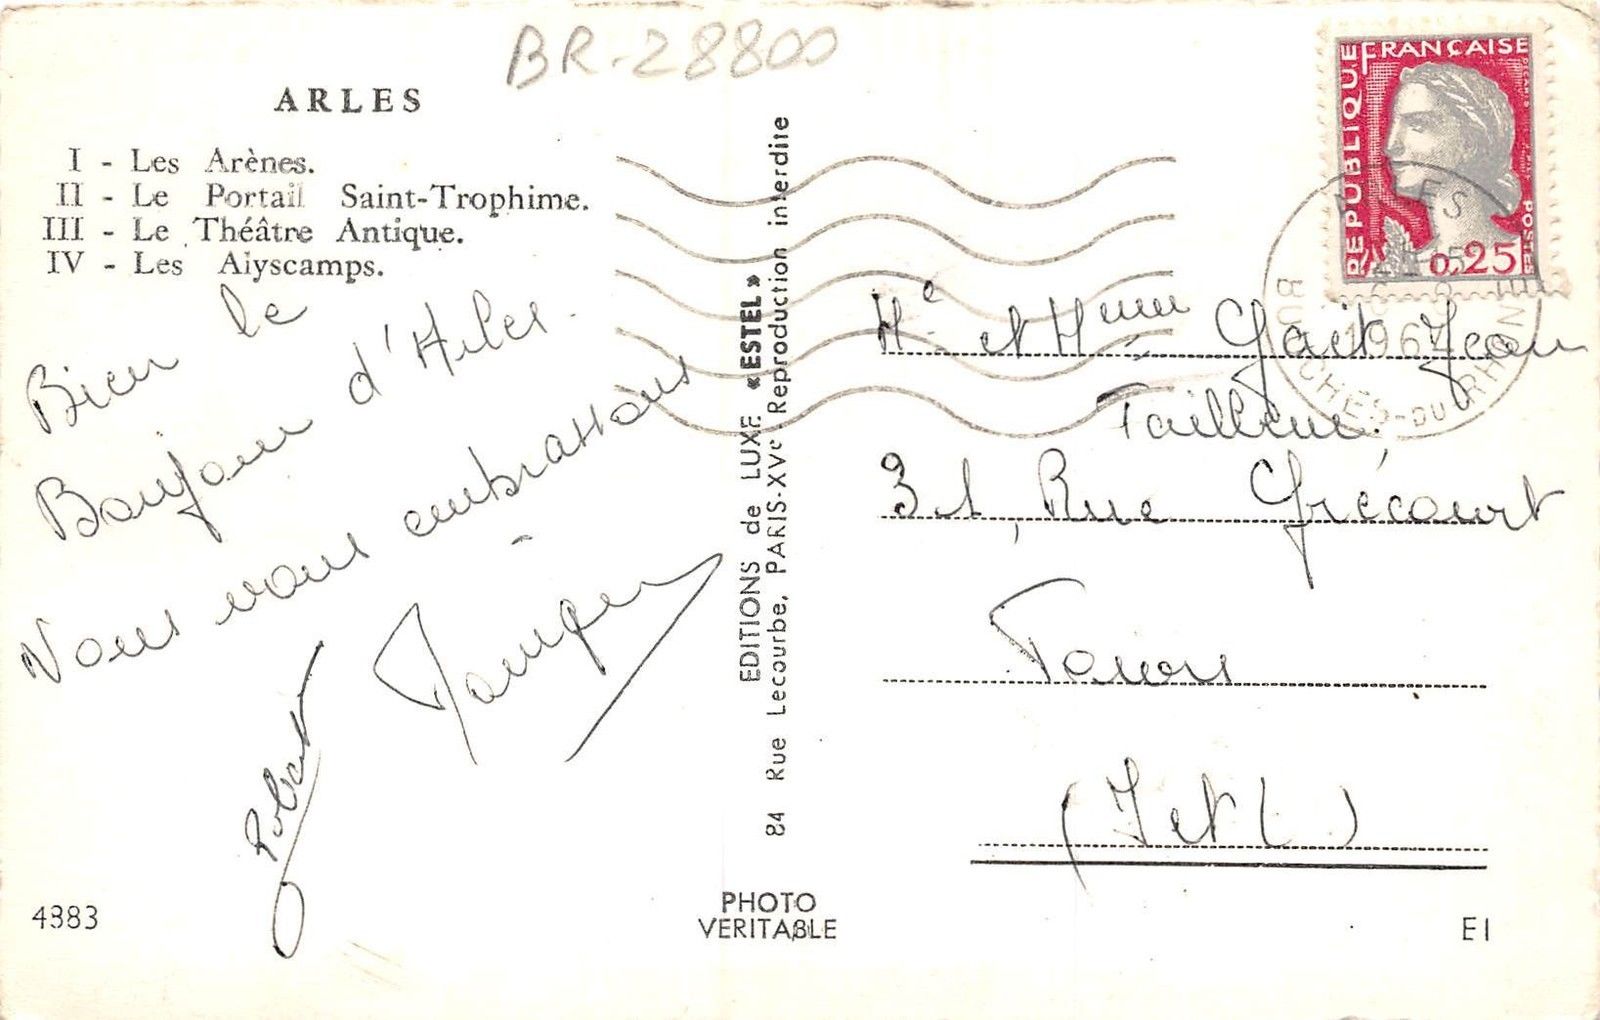 BR-28800
ARLES
I - Les Arènes.
II - Le Portail Saint-Trophime.
III - Le Théâtre Antique.
IV - Les Alyscamps.
Bien le
Bonjour d'Arles.
Nous vous embrassons
Robert
4383
EDITIONS de LUXE «ESTEL»
84 Rue Lecourbe, PARIS-XVe. Reproduction interdite
PHOTO
VERITABLE
REPUBLIQUE FRANÇAISE
POSTES
0,25
BOUCHES-DU-RHONE
Mr et Mme Gait Jean
Tailleur
31, Rue Grécourt
Tours
(I et L)
E I